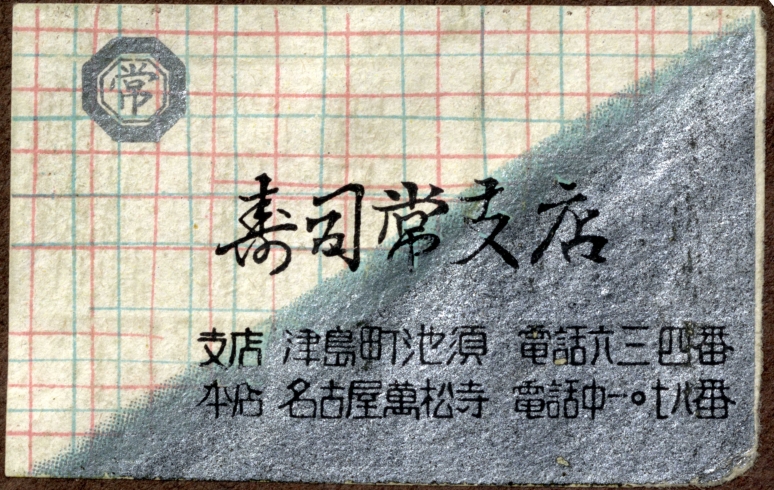 常
寿司常支店
支店 津島町池須 電話六三四番
本店 名古屋萬松寺 電話中一〇七八番